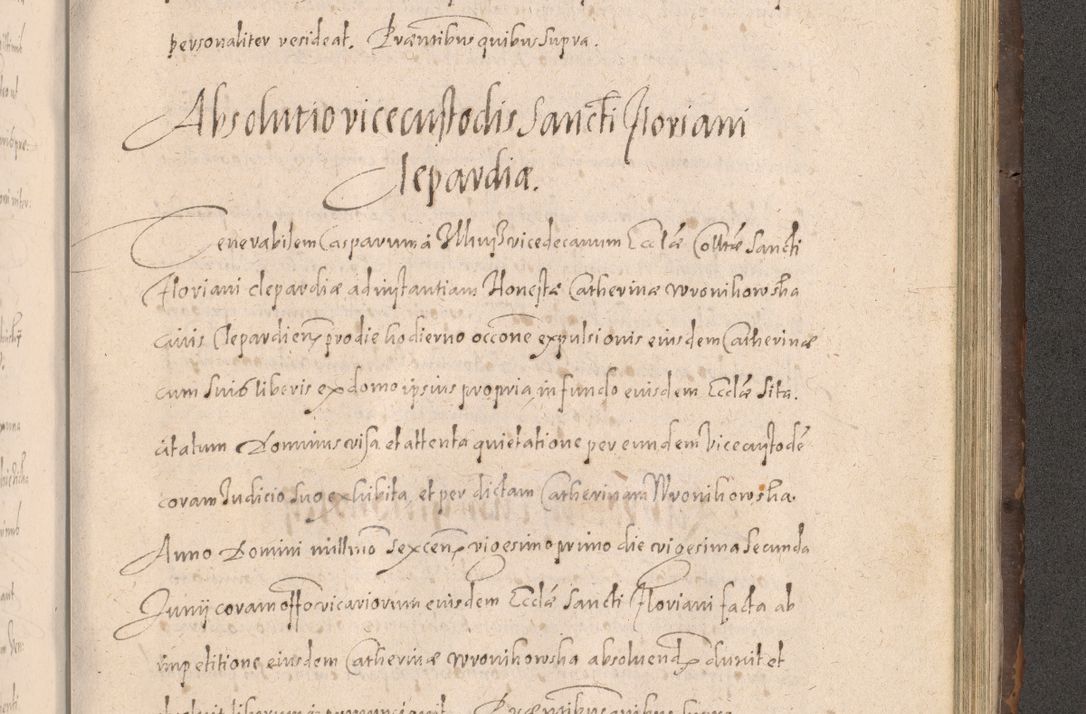 personaliter resideat. Præntibus quibus Supra.
Absolutio vicecustodis Sancti Floriani
Clepardiæ.
Venerabilem Casparum à vicedecanum Ecclæ Sancti
Floriani clepardiæ ad instantiam Honestæ Catherinæ Wronikowska
civis Clepardien pro die hodierno occone expulsionis eiusdem Catherinæ
cum Suis liberis ex domo ipsius propria in fundo eiusdem Ecclæ Sita.
citatum Dominus visa et attenta quietatione per eundem Vicecustodē
coram Iudicio Suo exhibita, et per dictam Catherinam Wronikowska.
Anno Domini millmo Sexcen vigesimo primo die vigesima Secunda
Junij coram offo vicariorum eiusdem Ecclæ Sancti Floriani facta ab
impetitione eiusdem Catherinæ Wronikowska absoluend duxit et
liberum pronunciavit. Præntibus quibus Supra